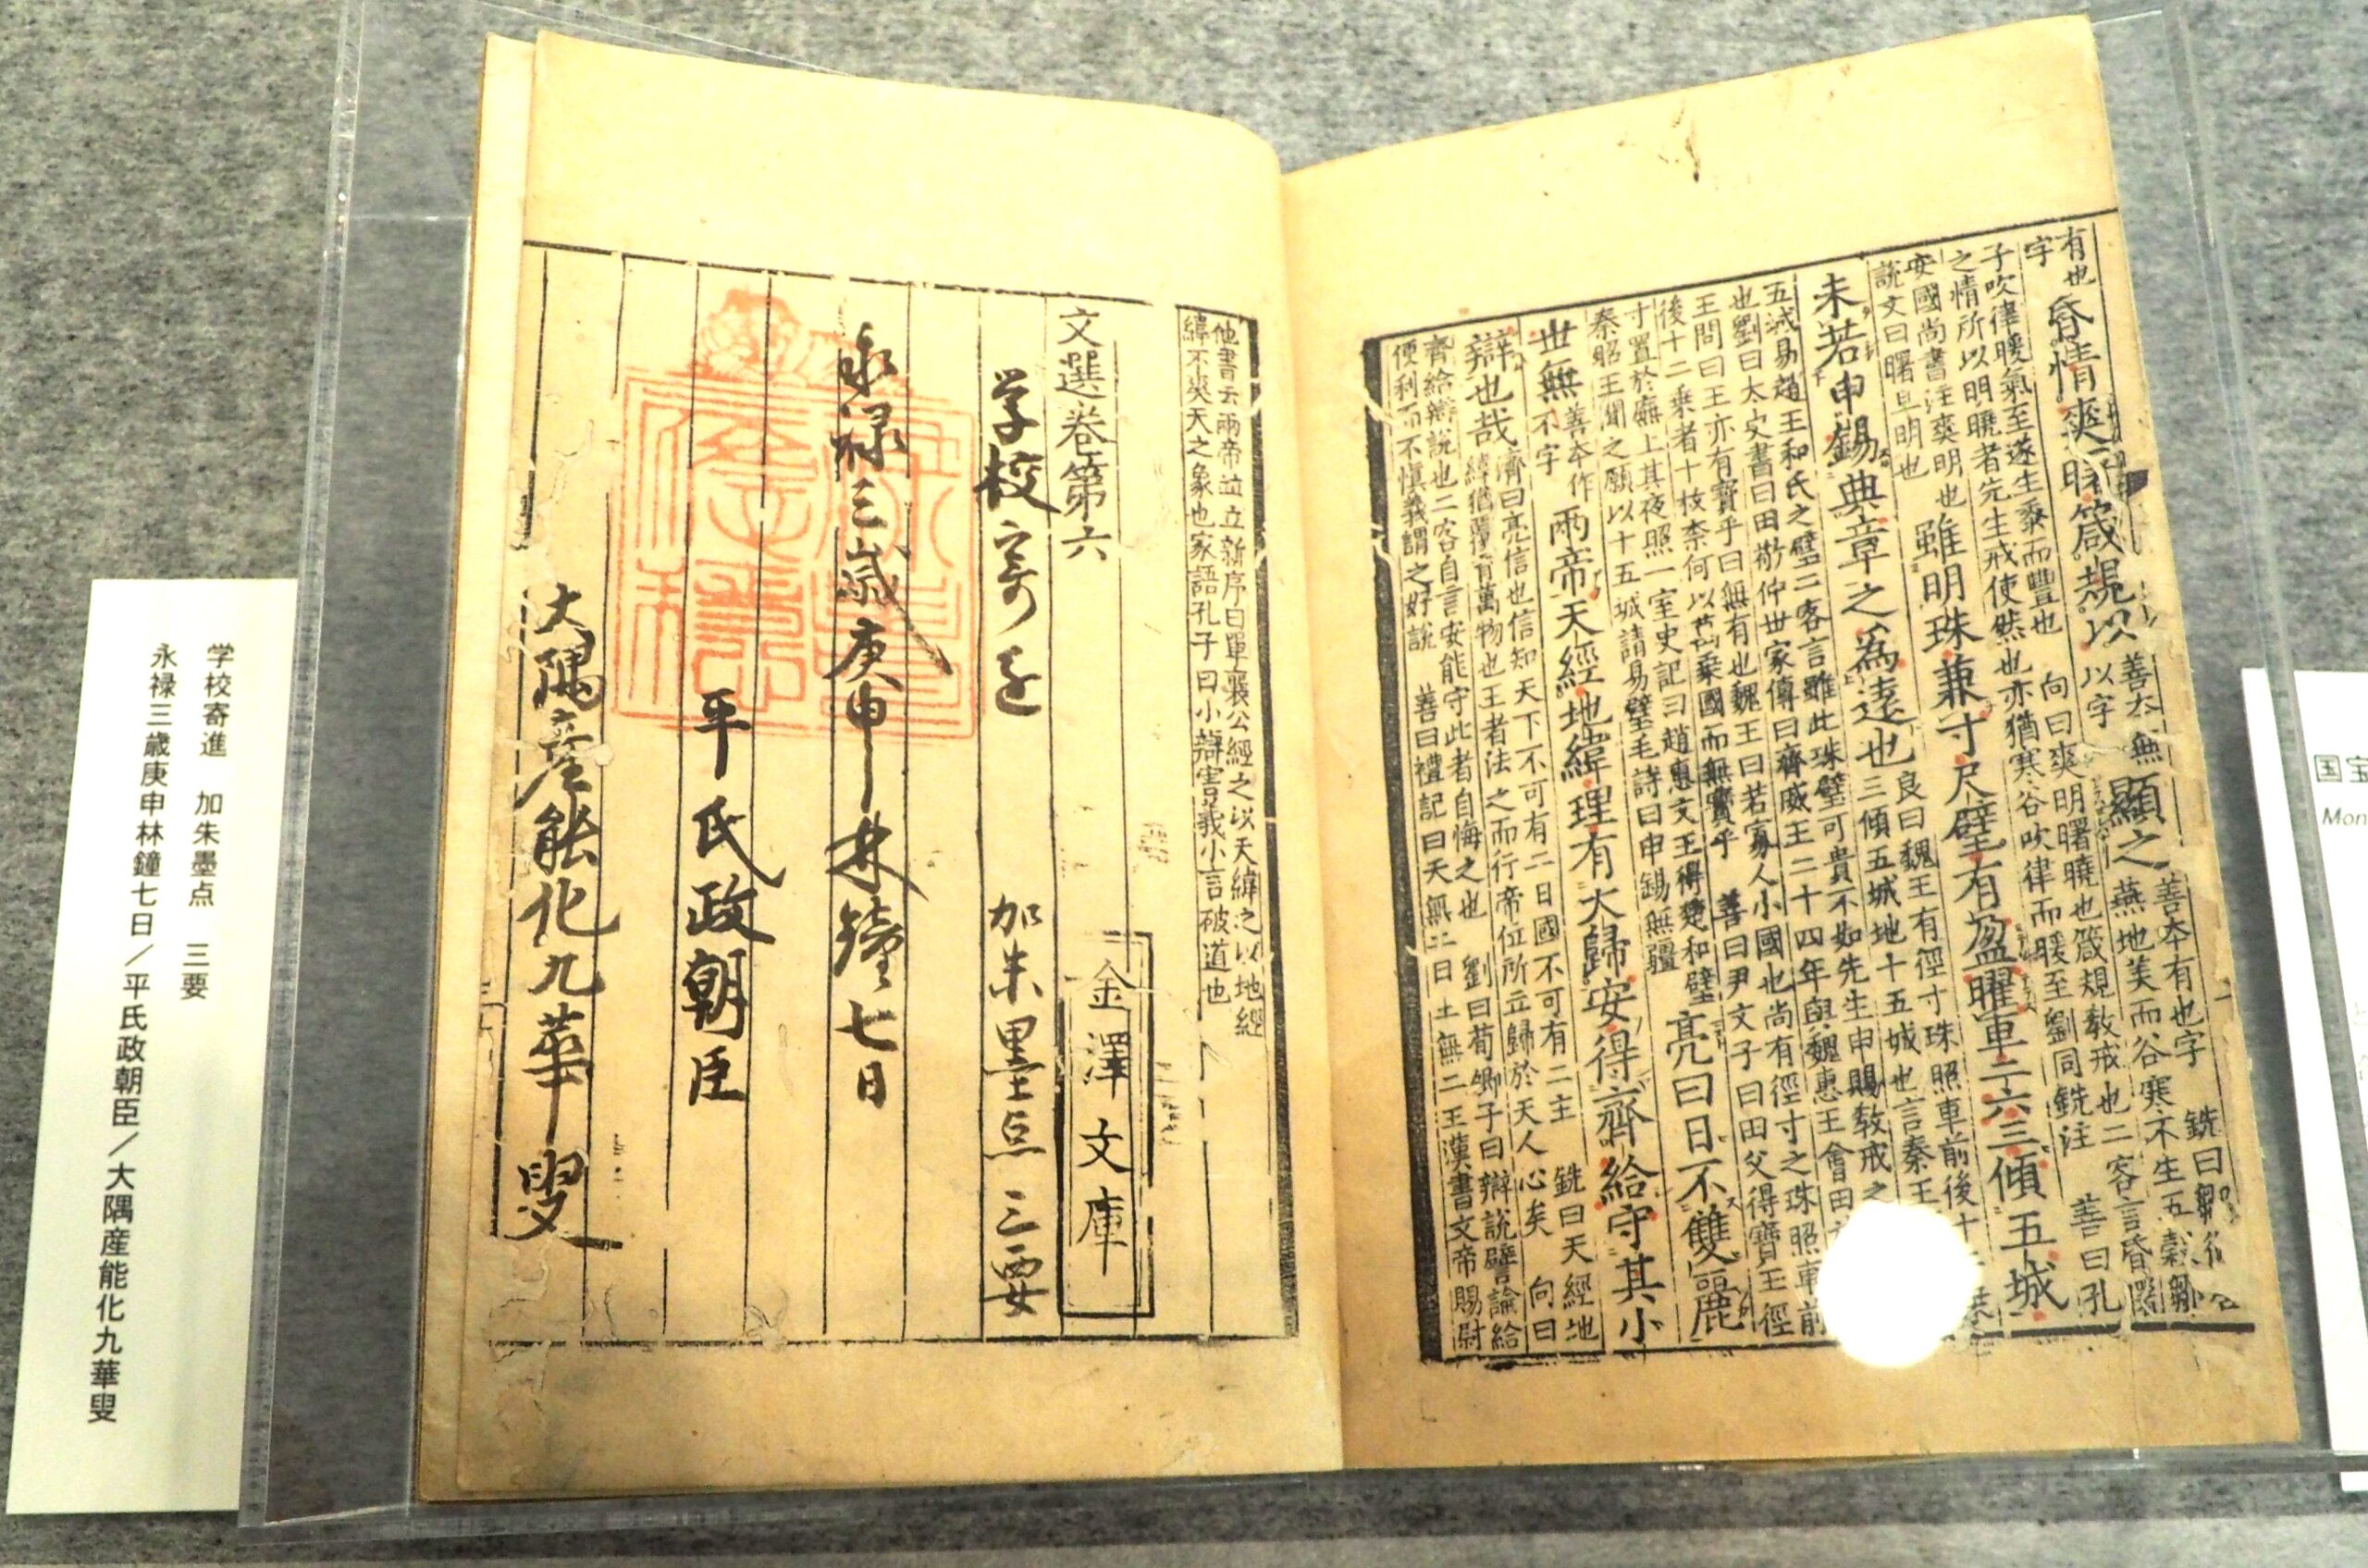 有也
字
昏情爽曙箴規以
善本無
以字
顯之
善本有也字 銑曰鄒衍
燕地美而谷寒不生五穀鄒
子吹律暖氣至遂生黍而豐也 向曰爽明曙曉也箴規敎戒也二客言昏
之情所以明曉者先生戒使然也亦猶寒谷吹律而暖至劉同銑注 善曰孔
安國尚書注爽明也
說文曰曙旦明也
雖明珠兼寸尺璧有盈曜車二六三傾五城
未若申錫典章之為遠也
良曰魏王有徑寸珠照車前後十
三傾五城地十五城也言秦王
五誡易趙王和氏之璧二客言雖此珠璧可貴不如先生申賜敎戒之
也劉曰太史書曰田敬仲世家傳曰齊威王二十四年與魏惠王會田
王問曰王亦有寶乎曰無有也魏王曰若寡人小國也尚有徑寸之珠照車前
後十二乘者十枚柰何以萬乘國而無寶乎 善曰尹文子曰田父得寶玉徑
寸置於廡上其夜照一室史記曰趙惠文王得楚和璧
秦昭王聞之願以十五城請易璧毛詩曰申錫無疆
亮曰日不雙麗
世無
善本作
不字
兩帝天經地緯理有大歸安得齊給守其小
辯也哉
濟曰亮信也信知天下不可有二日國不可有二主 銑曰天經地
緯猶覆育萬物也王者法之而行帝位所立歸於天人心矣 向曰
齊給辯說也二客自言安能守此者自悔之也 劉曰荀卿子曰辯說譬論給
便利而不慎義謂之好說 善曰禮記曰天無二日土無二王漢書文帝賜尉
他書云兩帝竝立新序曰單襄公經之以天緯之以地經
緯不爽天之象也家語孔子曰小辯害義小言破道也
文選卷第六
金澤文庫
学校寄進 加朱墨点 三要
永禄三歳庚申林鐘七日
平氏政朝臣
大隅産能化九華叟
学校寄進 加朱墨点 三要
永禄三歳庚申林鐘七日/平氏政朝臣/大隅産能化九華叟
国宝
Mon